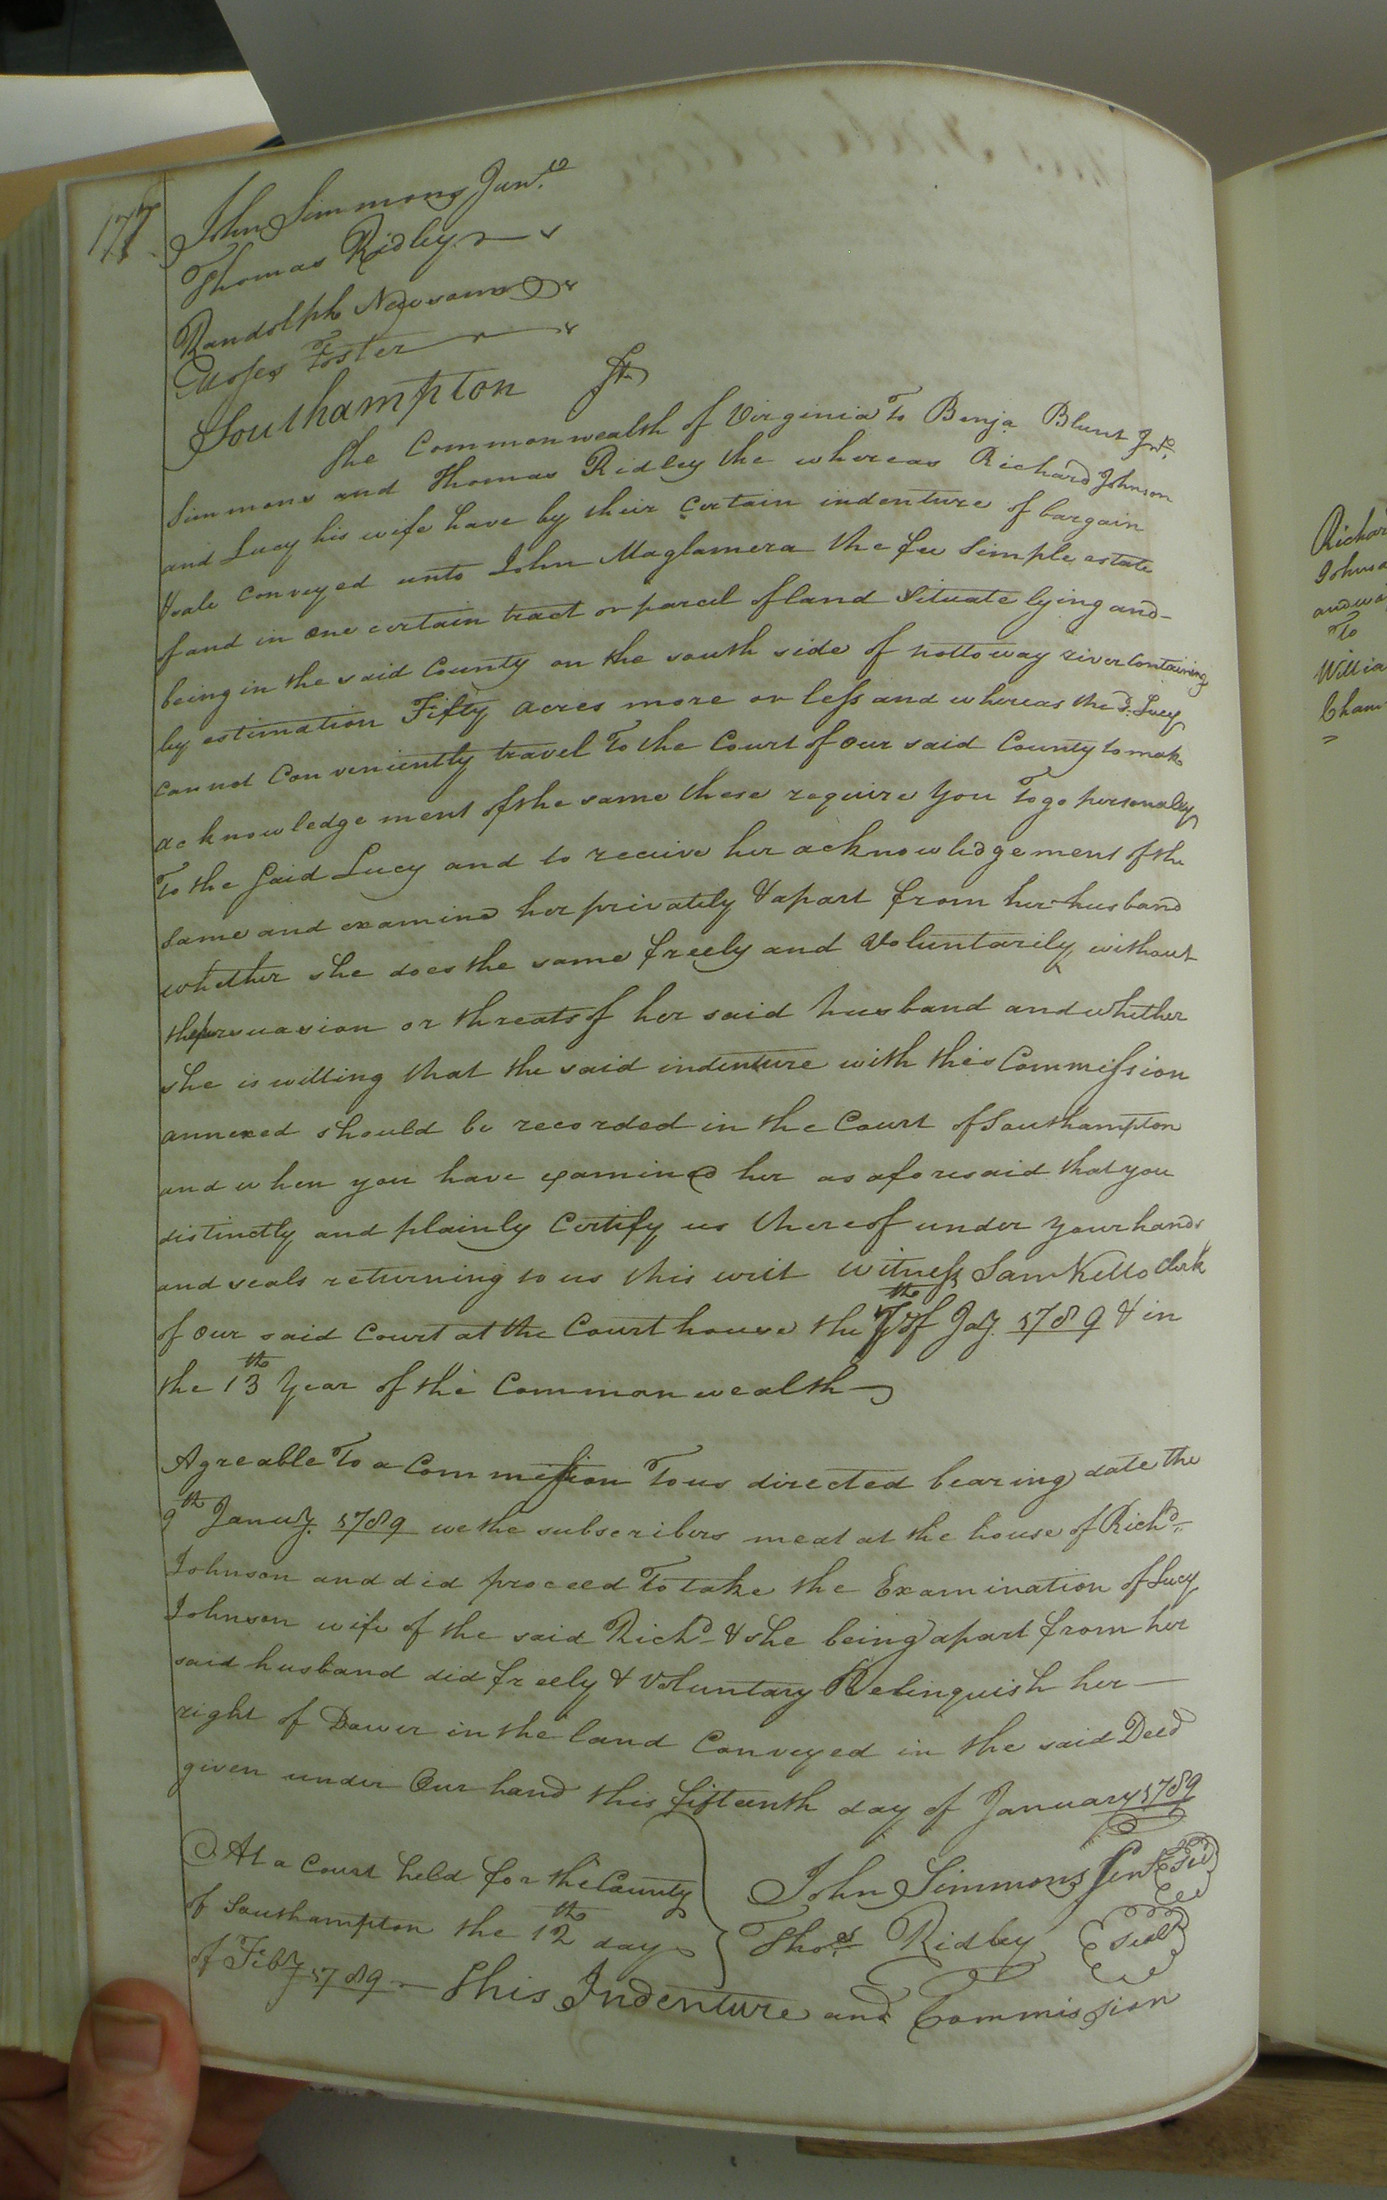 177
John Simmons Junr.
Thomas Ridley
Randolph Newsome
Moses Foster
Southampton Sct.
The Commonwealth of Virginia To Benja Blunt Jno.
Simmons and Thomas Ridley the whereas Richard Johnson
and Lucy his wife have by their certain indenture of bargain
&sale conveyed unto John Maglamera the fee simple estate
of and in one certain tract or parcel of land Situate lying and
being in the said County on the south side of nottoway river Containing
by estimation Fifty acres more or less and whereas the sd. Lucy
cannot Conveniently travel To the Court of our said County to make
acknowledgement of the same these require you To go personaley
To the Said Lucy and to receive her acknowledgement of the
same and examine her privately & apart from her husband
whether she does the same freely and Voluntarily without
the persuasion or threats of her said husband and whether
she is willing that the said indenture with this Commission
annexed should be recorded in the Court of Southampton
and when you have examined her as aforesaid that you
distinctly and plainly Certify us thereof under your hands
and seals returning to us this writ Witness Sam Kello Clerk
of our said Court at the Court house the th of Jay. 1789 & in
the 13th Year of the Commonwealth
Agreable To a Commission To us directed bearing date the
9th Januy. 1789 we the subscribers meat at the house of Richd.
Johnson and did proceed To take the Examination of Lucy
Johnson wife of the said Richd & she being apart from her
said husband did freely & Voluntary Relinquish her
right of Dower in the land Conveyed in the said Deed
given under Our hand this fifteenth day of January 1789
At a Court held for the County
of Southampton the 12th day
of Feby 1789
John Simmons Senr Seal
Thos Ridley Seal
This Indenture and Commission
Richar
Johnso
and wi
To
Willia
Cham